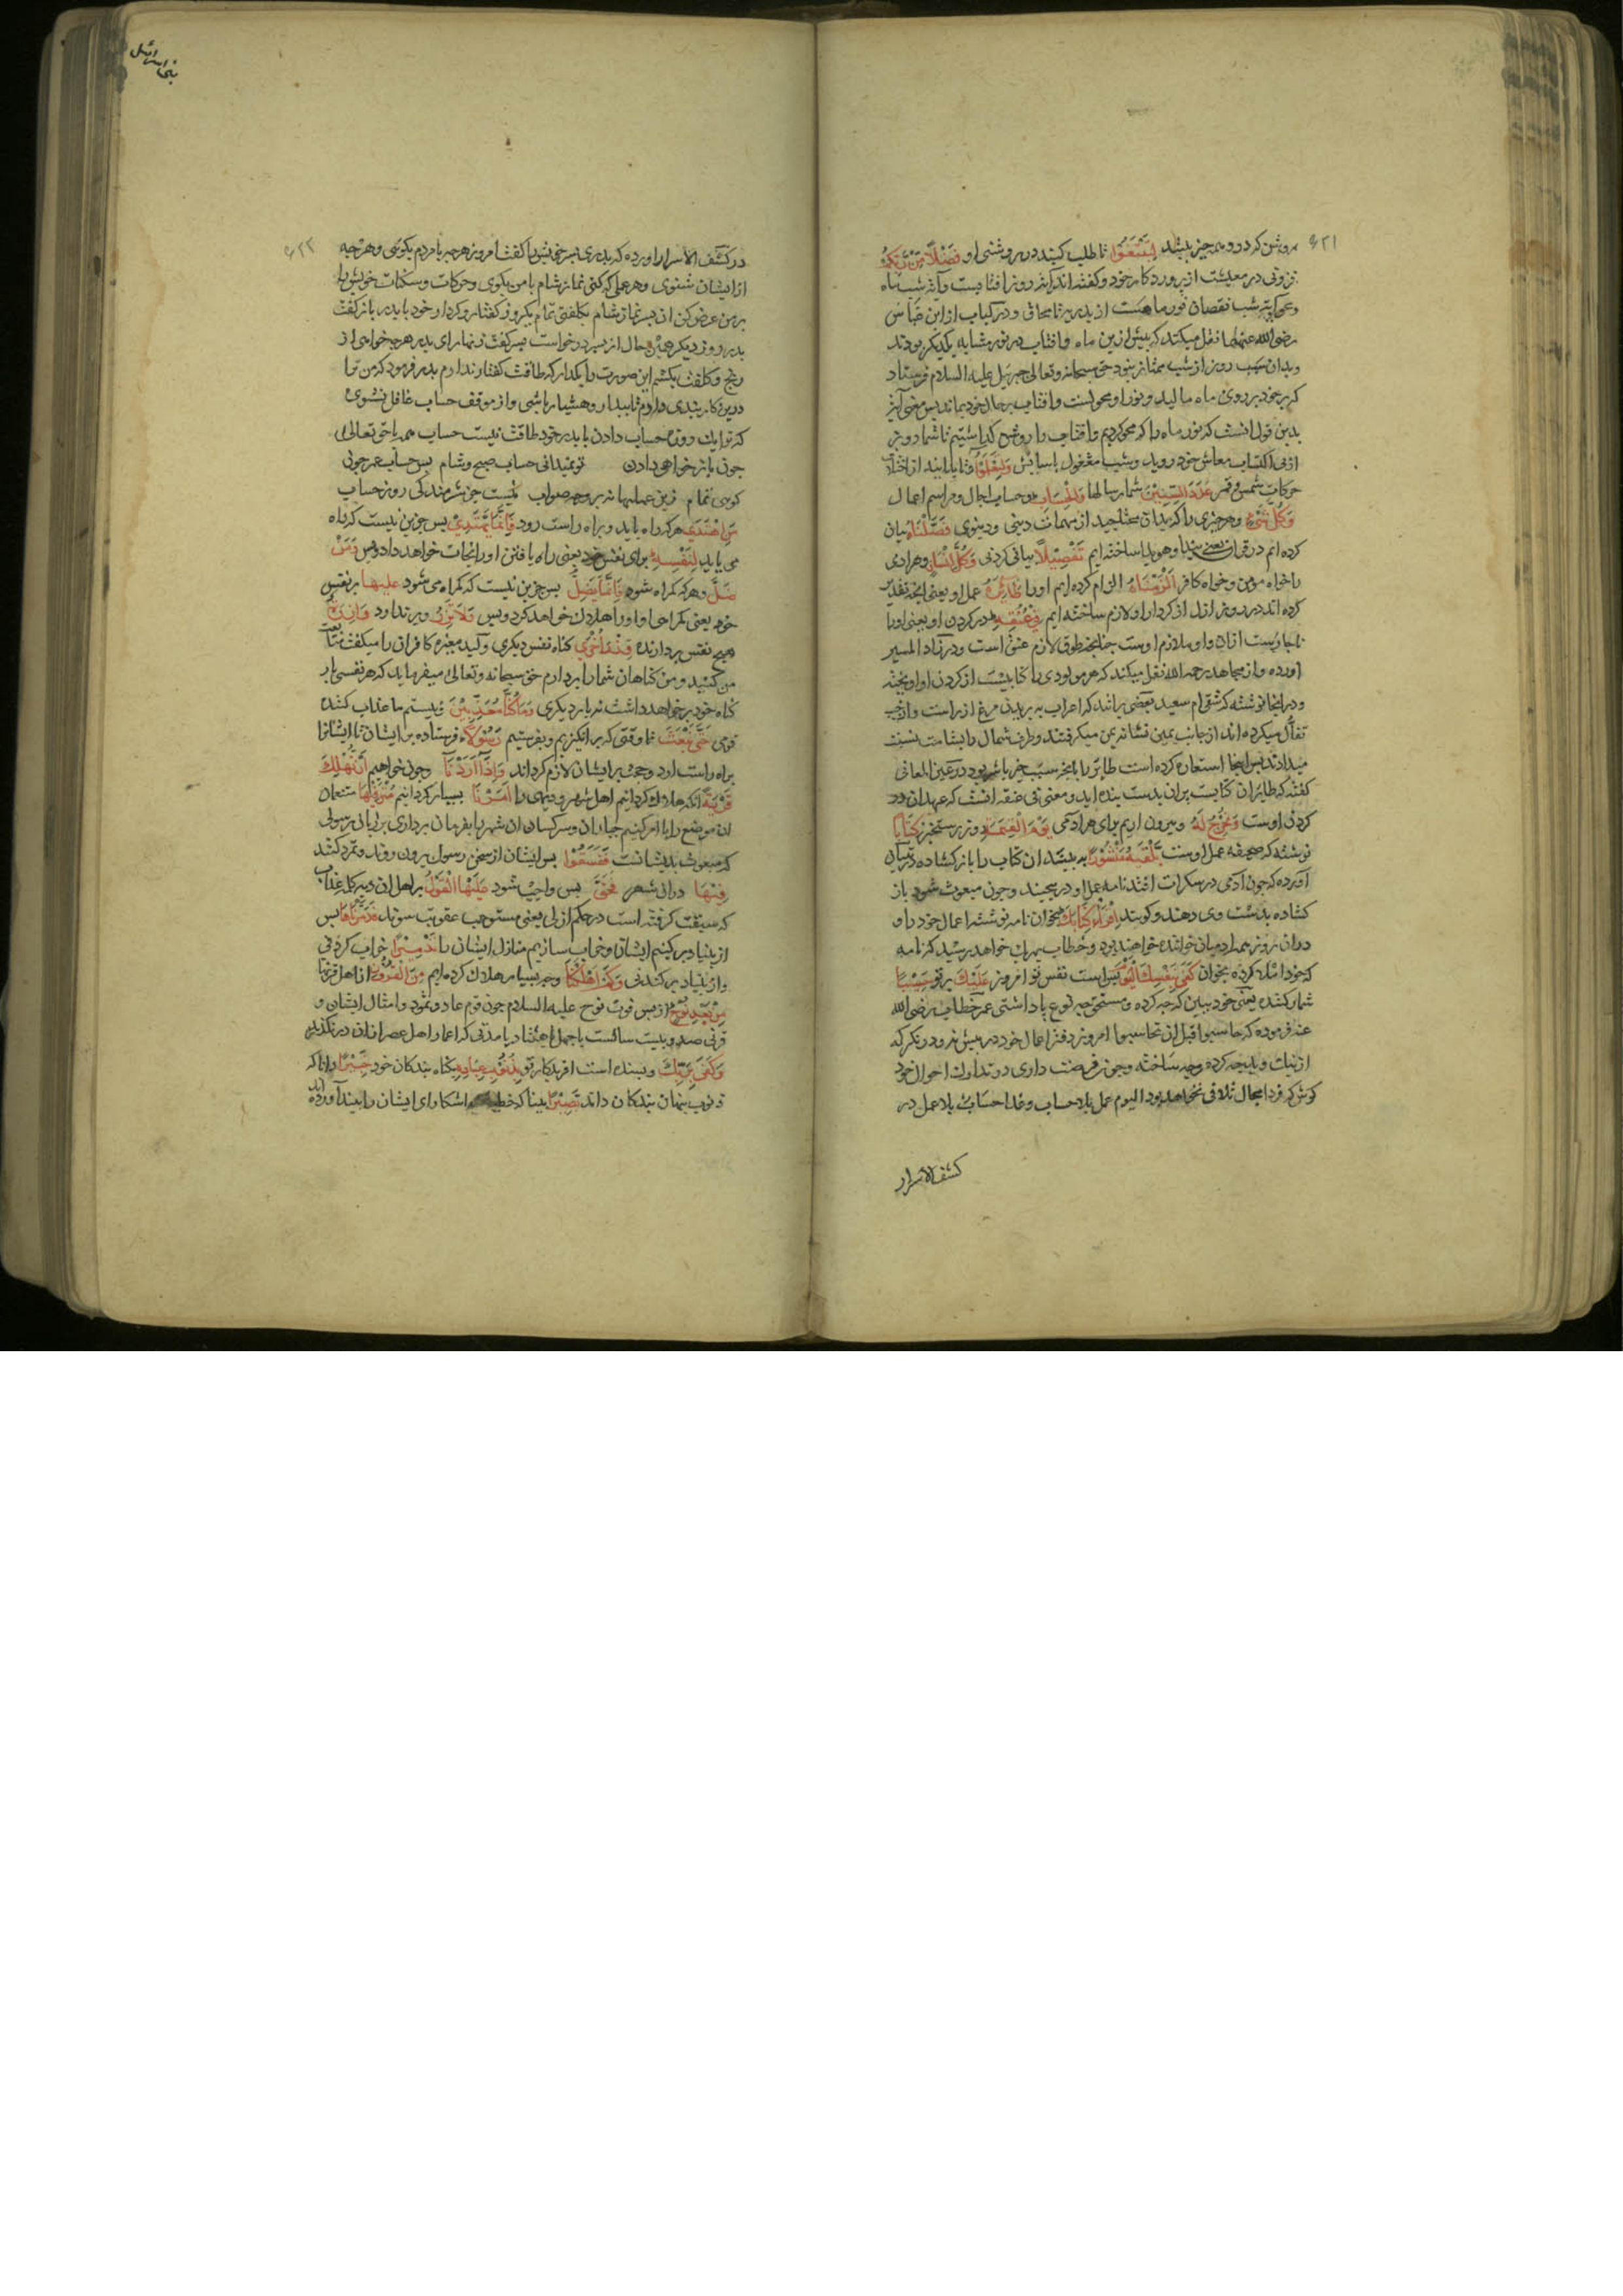 ۶۲۱
روشن کرد و همه چیز بیند لِتَبْتَغُوا تا طلب کنید در روشنی او فَضْلًا مِّن رَّبِّكُمْ
فزونی در معیشت از پروردکار خود و کفته اند که آیة روز افتابست و آیة شب ماه
و محو آیة شب نقصان نور ماهست از بدر تا محاق و در کباب از ابن عباس
رضی الله عنهما نقل میکند که پیش ازین ماه و افتاب در نور مشابه یکدیکر بودند
و بدان سبب روز از شب ممتاز نبود حق سبحانه و تعالی جبرئیل علیه السلام فرستاد
که پر خود بر روی ماه مالید و نور او محو کشت و افتاب بر حال خود بماند پس معنی آیة
بدین قول انست که نور ماه را که محو کردیم و افتاب را روشن کذاشتیم تا شما روز
از پی اکتساب معاش خود روید و شب مشغول باسایش وَلِتَعْلَمُوا و تا بدانید از اختلاف
حرکات شمس و قمر عَدَدَ السِّنِينَ شمار سالها وَالْحِسَابَ و حساب اجال و مراسم اعمال
وَكُلَّ شَيْءٍ و هر چیزی را که بدان محتاجید از مهمات دینی و دنیوی فَصَّلْنَاهُ بیان
کرده ایم در قران یعنی پیدا و هویدا ساخته ایم تَفْصِيلًا بیان کردنی وَكُلَّ إِنسَانٍ و هر ادمی
را خواه مومن و خواه کافر أَلْزَمْنَاهُ الزام کرده ایم او را طَائِرَهُ عمل او یعنی انچه تقدیر
کرده اند در روز ازل از کردار او لازم ساخته ایم فِي عُنُقِهِ در کردن او یعنی او را
ناچارست ازان و او ملازم اوست چنانچه طوق لازم عنق است و در زاد المسیر
اورده و از مجاهد رحمه الله نقل میکند که هر مولودی را کتابیست از کردن او اویخته
و در انجا نوشته که شقی ام سعید بعضی برانند که اعراب به پریدن مرغ از راست و از چپ
تفأل میکرده اند از جانب یمین نشانه یمن میکرفتند و طرف شمال را بشامت نسبت
میدادند پس اینجا استعاره کرده است طایر را بانچه سبب خیر یا شر بود در عین المعانی
کفته که طایران کتابست که پران بدست بنده اید و معنی فی عنقه انست که عهدان در
کردن اوست وَنُخْرِجُ لَهُ و بیرون اریم برای هر ادمی يَوْمَ الْقِيَامَةِ روز رستخیز كِتَابًا
نوشته که صحیفه عمل اوست يَلْقَاهُ مَنشُورًا به بیند ان کتاب را باز کشاده در تبیان
آورده که چون ادمی در سکرات افتد نامه عمل او در پیچند و چون مبعوث شود باز
کشاده بدست وی دهند و کویند اقْرَأْ كِتَابَكَ بخوان نامه نوشته اعمال خود را و
دران روز همه ادمیان خواننده خواهند بود و خطاب بهر یک خواهد رسید که نامه
که خود املا کرده بخوان كَفَىٰ بِنَفْسِكَ الْيَوْمَ بس است نفس تو امروز عَلَيْكَ بر تو حَسِيبًا
شمار کننده یعنی خود ببین که چه کرده و مستحق چه نوع پاداشتی عمر خطاب رضی الله
عنه فرموده که حاسبوا قبل ان تحاسبوا امروز دفتر اعمال خود در پیش نه و در نکر که
از نیک و بد چه کرده و چه ساخته و چون فرصت داری در تدارک احوال خود
کوش که فردا مجال تلافی نخواهد بود الیوم عمل بلا حساب و غدا حساب بلا عمل در
کشف الاسرار
بنی اسرائیل
۶۲۲
در کشف الاسرار اورده که پدری پسر خویش را کفت امروز هر چه با مردم بکویی و هر چه
از ایشان شنوی و هر عملی که کنی نماز شام با من بکوی و حرکات و سکنات خویش را
بر من عرض کن ان پسر نماز شام بکلفتی تمام یکروز کفتار و کردار خود با پدر باز کفت
پدر روز دیکر همین حال از پسر درخواست پسر کفت زنهار ای پدر هر چه خواهی از
رنج و کلفت بکشم این صورت را بکذار که طاقت کفتار ندارم پدر فرمود که من ترا
درین کار بندی دارم تا بیدار و هشیار باشی و از موقف حساب غافل نشوی
که ترا یک روزه حساب دادن با پدر خود طاقت نیست حساب همه با حق تعالی
چون باز خواهی دادن تو نمیدانی حساب صبح و شام پس حساب عمر چونی
کویی تمام زین عملها نه بر وجه صواب نیست جز شرمندکی روز حساب
مَّنِ اهْتَدَىٰ هر که راه یابد و براه راست رود فَإِنَّمَا يَهْتَدِي پس جزین نیست که راه
می یابد لِنَفْسِهِ برای نفس خود یعنی راه یافتن او را نجات خواهد داد و بس وَمَن
ضَلَّ و هر که کمراه شود فَإِنَّمَا يَضِلُّ پس جزین نیست که کمراه می شود عَلَيْهَا بر نفس
خود یعنی کمراهی او او را هلاک خواهد کرد و بس وَلَا تَزِرُ و بر ندارد وَازِرَةٌ
هیچ نفس بردارنده وِزْرَ أُخْرَىٰ کناه نفس دیکری ولید مغیره کافران را میکفت متابعت
من کنید و من کناهان شما را بردارم حق سبحانه و تعالی میفرماید که هر نفسی بار
کناه خود بر خواهد داشت نه بار دیکری وَمَا كُنَّا مُعَذِّبِينَ و نیستیم ما عذاب کننده
قومی حَتَّىٰ نَبْعَثَ تا وقتی که بر انکیزیم و بفرستیم رَسُولًا فرستاده بر ایشان تا ایشانرا
براه راست ارد و حجت بر ایشان لازم کرداند وَإِذَا أَرَدْنَا و چون خواهیم أَن نُّهْلِكَ
قَرْيَةً انکه هلاک کردانیم اهل شهر و دیهی را أَمَرْنَا بسیار کردانیم مُتْرَفِيهَا متنعمان
ان موضع را یا امر کنیم جباران و سرکشان ان شهر را بفرمان برداری بر زبان رسولی
که مبعوث بدیشانست فَفَسَقُوا پس ایشان از سخن رسول بیرون روند و تمرد کنند
فِيهَا دران شهر فَحَقَّ پس واجب شود عَلَيْهَا الْقَوْلُ بر اهل ان دیه کلمه عذاب
که سبقت کرفته است در حکم ازلی یعنی مستوجب عقوبت شوند فَدَمَّرْنَاهَا پس
از بنیاد بر کنیم ایشانرا و خراب سازیم منازل ایشان را تَدْمِيرًا خراب کردنی
و از بنیاد بر کندنی وَكَمْ أَهْلَكْنَا و چه بسیار هلاک کرده ایم مِنَ الْقُرُونِ از اهل قرنها
مِن بَعْدِ نُوحٍ از پس فوت نوح علیه السلام چون قوم عاد و ثمود و امثال ایشان و
قرنی صد و بیست سالست یا چهل یا هشتاد یا مدتی که اعمار اهل عصر ازان در نکذرد
وَكَفَىٰ بِرَبِّكَ و بسنده است افریدکار تو بِذُنُوبِ عِبَادِهِ بکناه بندکان خود خَبِيرًا دانا که
ذنوب پنهان بندکان داند بَصِيرًا بینا که خطیه اشکارای ایشان را بیند آورده اند